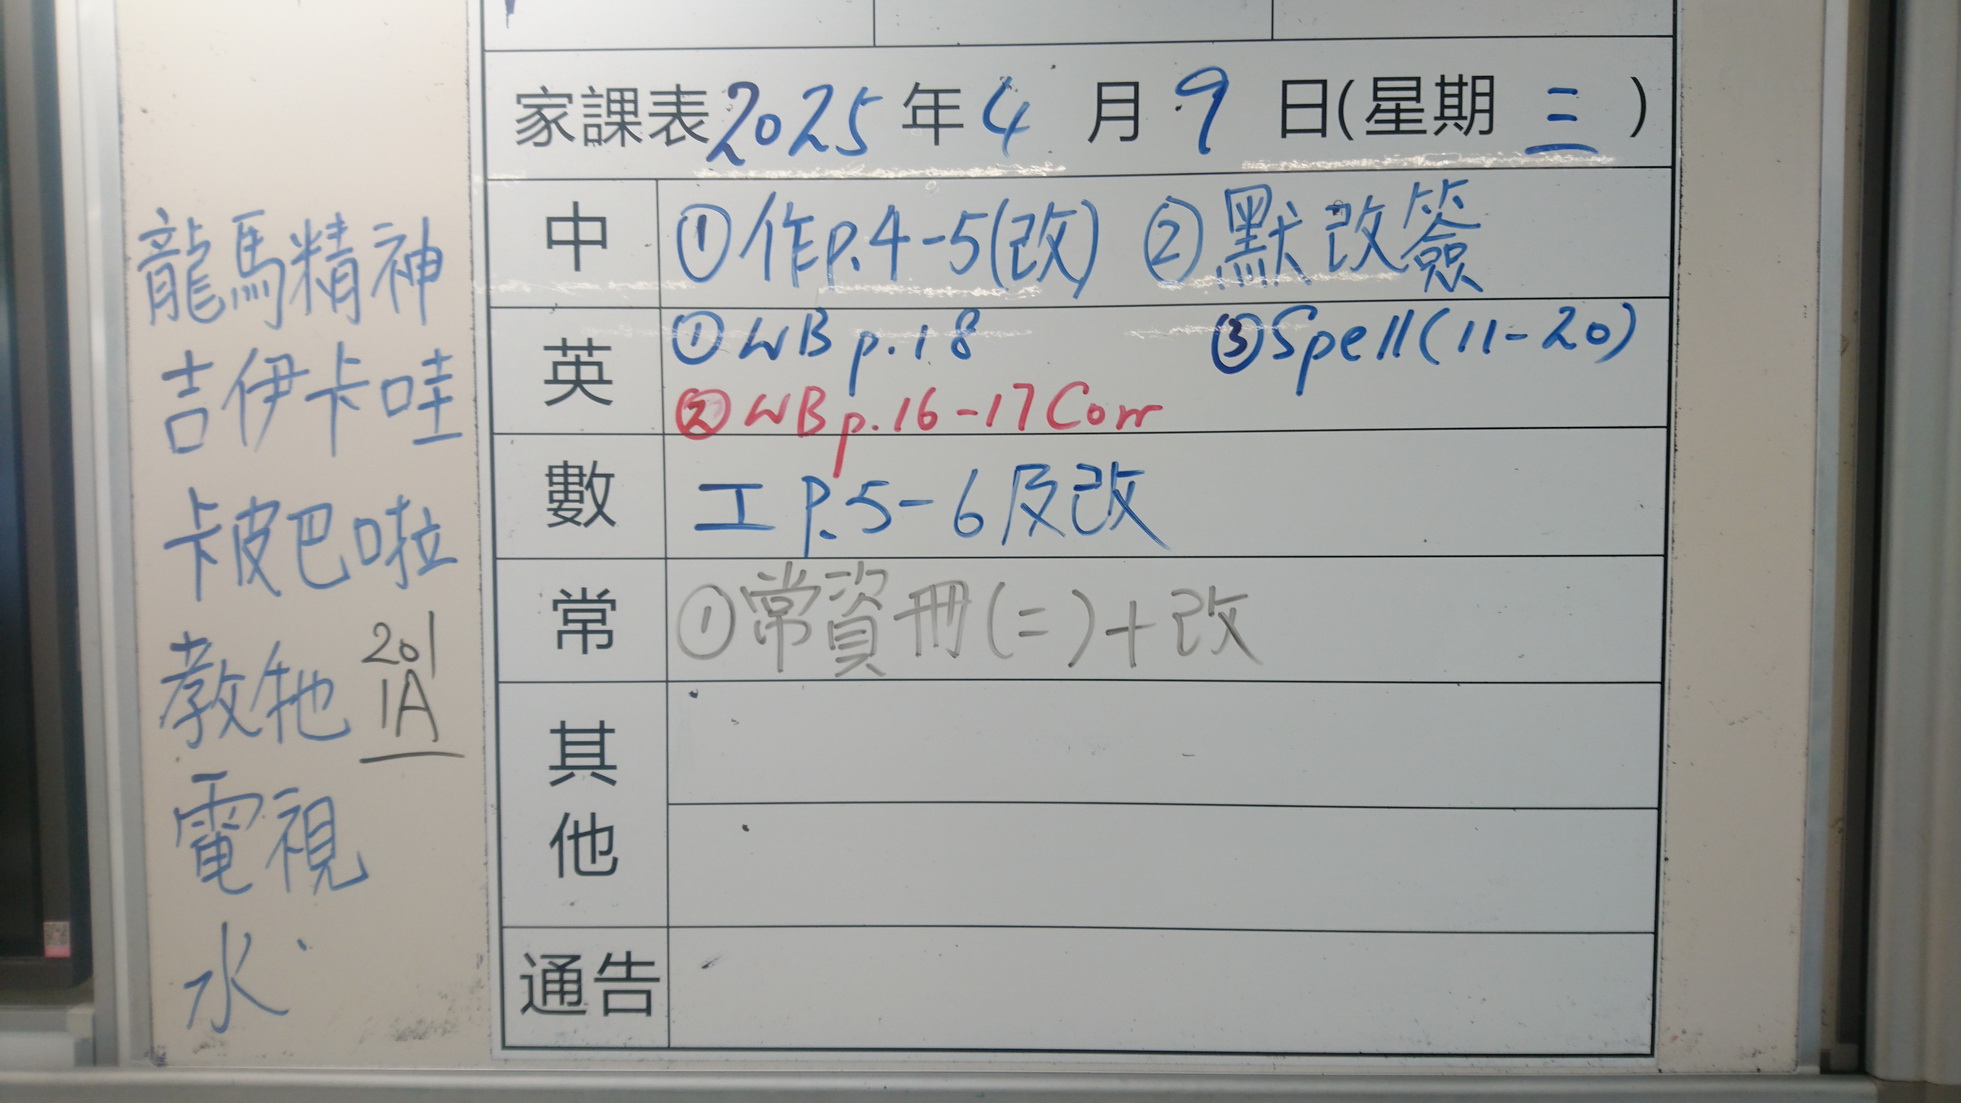 家課表2025年4月9日(星期三)
中 ①作p.4-5(改) ②默改簽
英 ①WB p.18 ③Spell(11-20)
②WB p.16-17 Corr
數 工P.5-6及改
常 ①常資冊(二)+改
其他
通告
龍馬精神
吉伊卡哇
卡皮巴啦
教牠
201
1A
電視
水